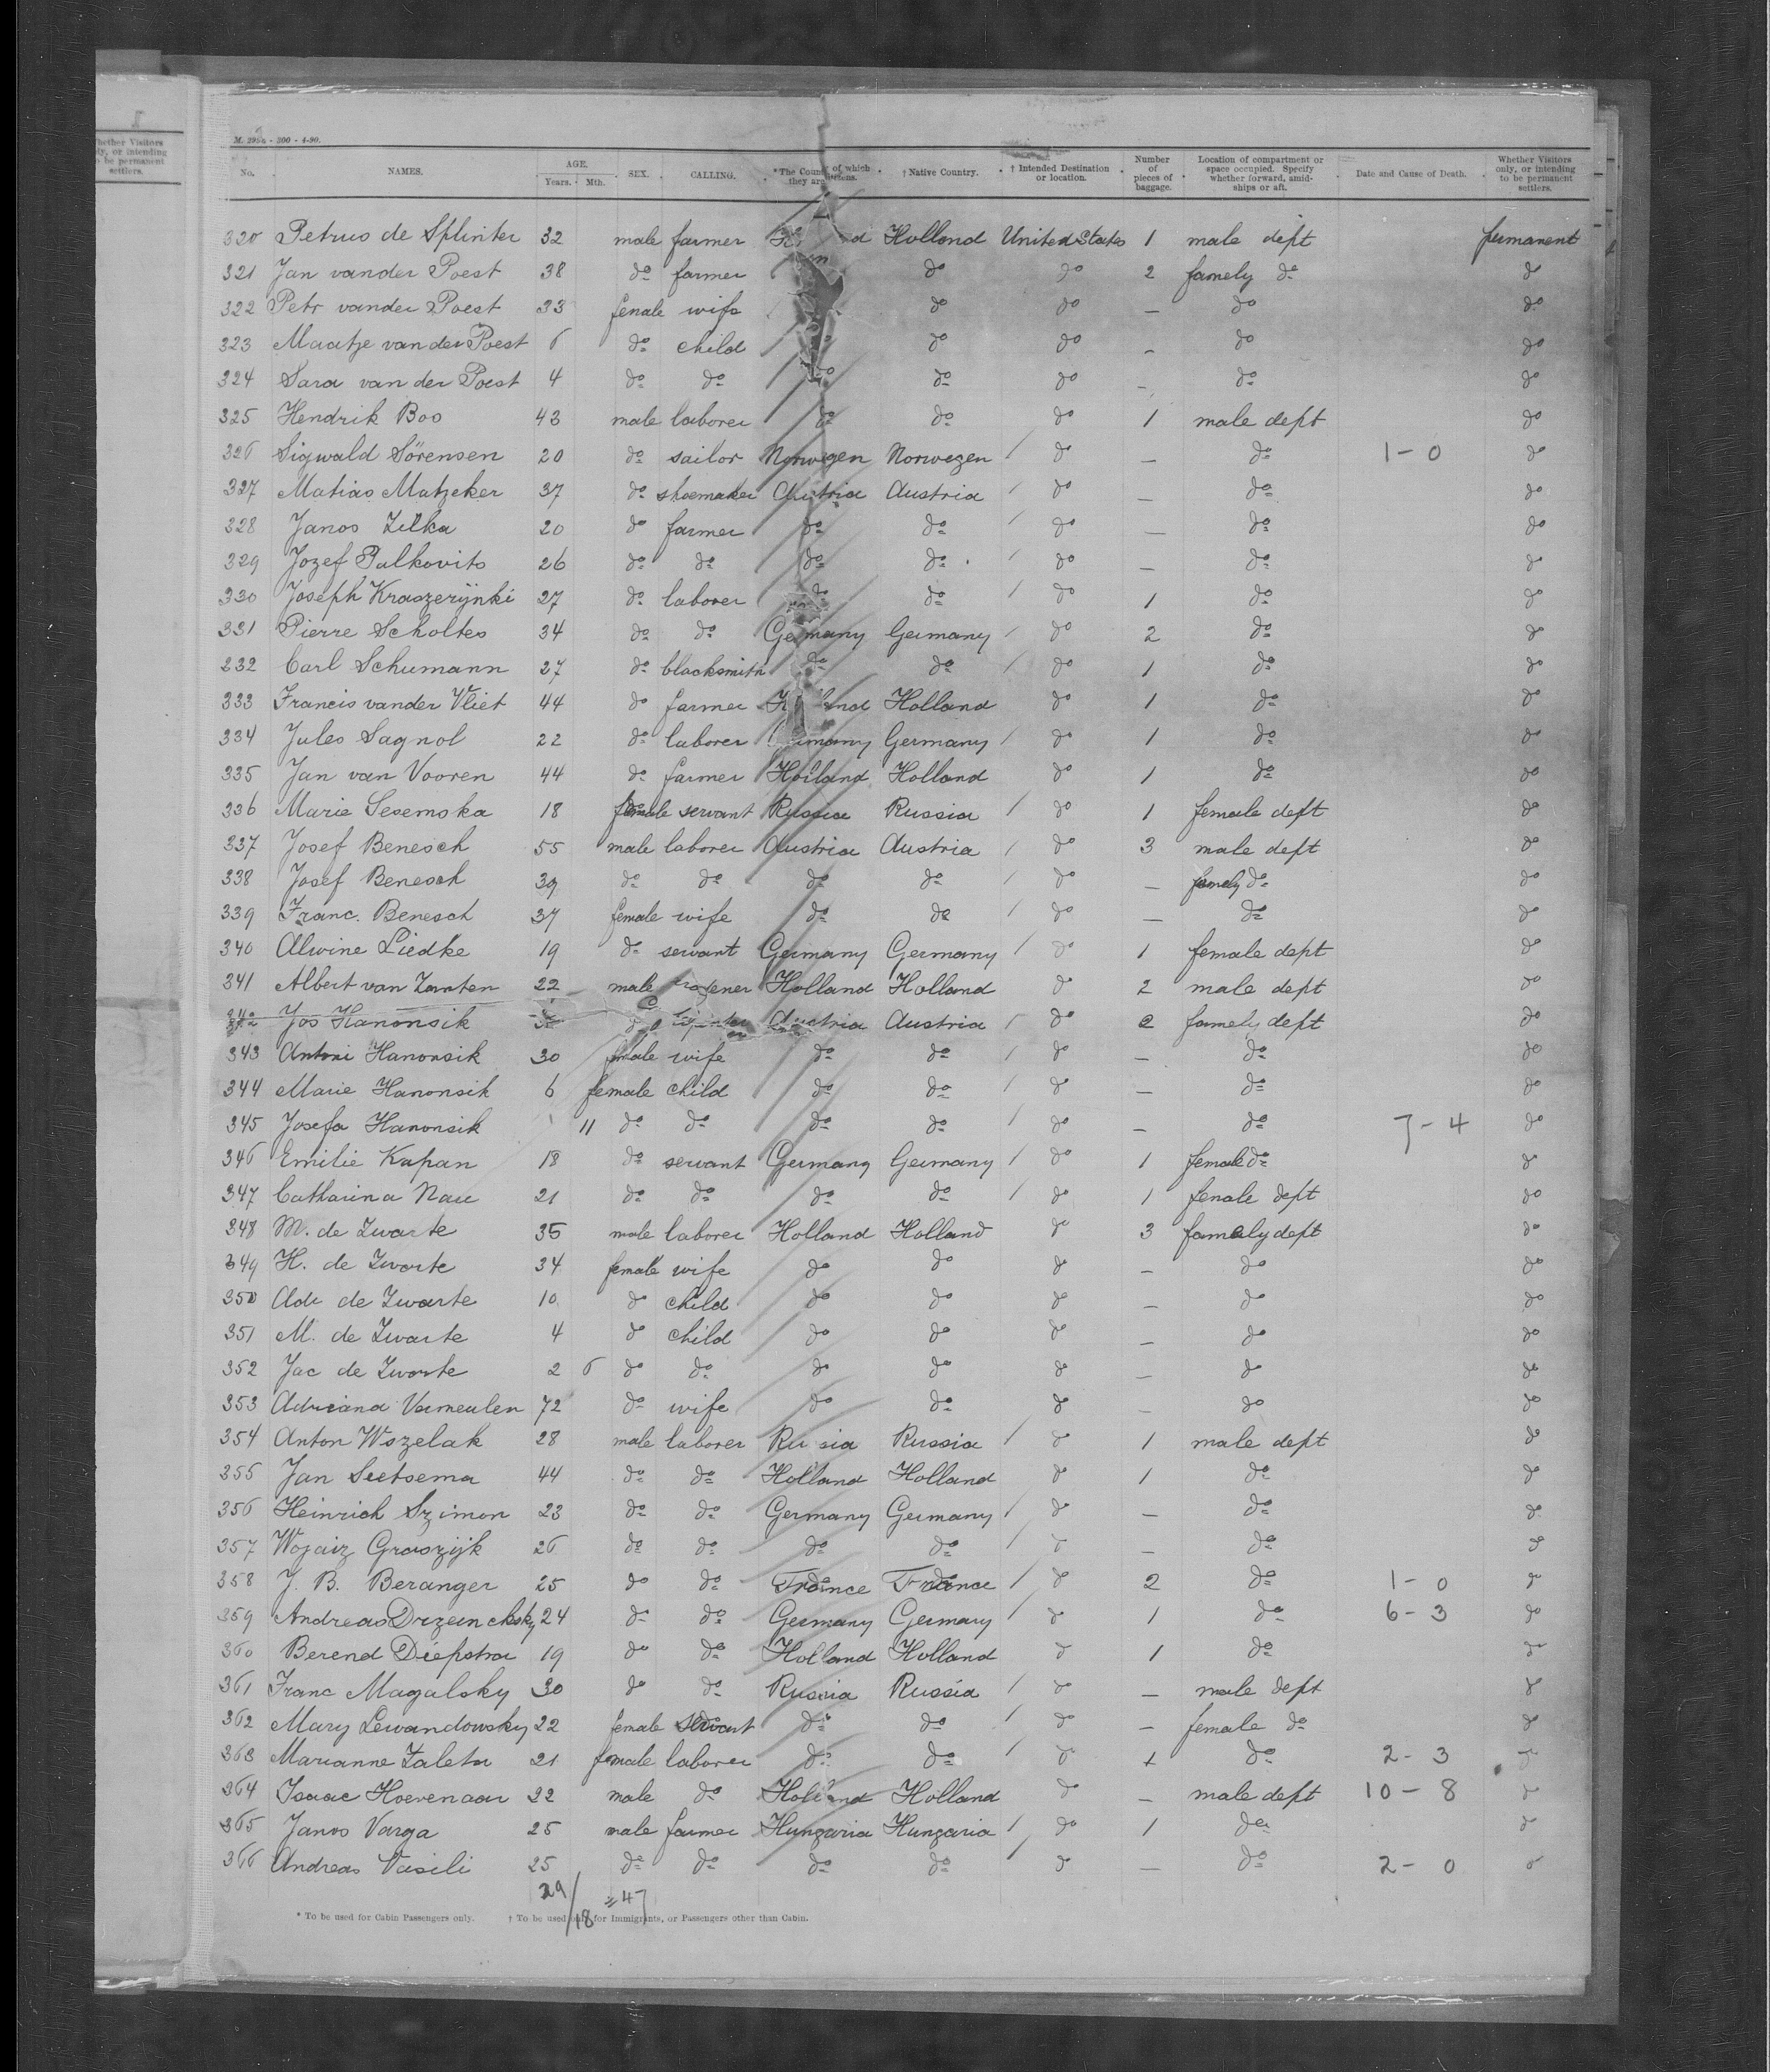 M. 295a - 300 - 4-90.
No. NAMES. AGE. Years. Mth. SEX. CALLING. *The Country of which they are Citizens. † Native Country. † Intended Destination or location. Number of pieces of baggage. Location of compartment or space occupied. Specify whether forward, amidships or aft. Date and Cause of Death. Whether Visitors only, or intending to be permanent settlers.
320 Petrus de Splinter 32 male farmer Holland United States 1 male dept permanent
321 Jan vander Poest 38 do farmer do do 2 famely do do
322 Petr vander Poest 33 female wife do do — do do
323 Maatje van der Poest 6 do child do do — do do
324 Sara van der Poest 4 do do do do do — do do
325 Hendrik Boo 43 male laborer do do do 1 male dept do
326 Sigwald Sörensen 20 do sailor Norwegen Norwegen / do — do 1 - 0 do
327 Matias Matzeker 37 do shoemaker Austria Austria / do — do do
328 Janos Zilka 20 do farmer do do / do — do do
329 Jozef Palkovits 26 do do do do / do — do do
330 Joseph Kraszerijnki 27 do laborer do do / do 1 do do
331 Pierre Scholtes 34 do do Germany Germany / do 2 do do
332 Carl Schumann 27 do blacksmith do do / do 1 do do
333 Francis vander Vliet 44 do farmer Holland Holland do 1 do do
334 Jules Sagnol 22 do laborer Germany Germany / do 1 do do
335 Jan van Vooren 44 do farmer Holland Holland do 1 do do
336 Marie Sesemska 18 female servant Russia Russia / do 1 female dept do
337 Josef Benesch 55 male laborer Austria Austria / do 3 male dept do
338 Josef Benesch 39 do do do do / do — famely do do
339 Franc. Benesch 37 female wife do do / do — do do
340 Alwine Liedke 19 do servant Germany Germany / do 1 female dept do
341 Albert van Zanten 22 male Holland Holland do 2 male dept do
342 Jos Hanonsik do Austria Austria / do 2 famely dept do
343 Antoni Hanonsik 30 female wife do do / do — do do
344 Marie Hanonsik 6 female child do do / do — do do
345 Josefa Hanonsik 11 do do do do / do — do 7 - 4 do
346 Emilie Kapan 18 do servant Germany Germany / do 1 female do do
347 Catharina Nau 21 do do do do / do 1 female dept do
348 M. de Zwarte 35 male laborer Holland Holland do 3 famely dept do
349 H. de Zwarte 34 female wife do do do — do do
350 Adr de Zwarte 10 do child do do do — do do
351 M. de Zwarte 4 do child do do do — do do
352 Jac de Zwarte 2 6 do do do do do — do do
353 Adriana Vermeulen 72 do wife do do do — do do
354 Anton Wszelak 28 male laborer Russia Russia / do 1 male dept do
355 Jan Sietsema 44 do do Holland Holland do 1 do do
356 Heinrich Szimon 23 do do Germany Germany / do — do do
357 Wojaiz Graszijk 26 do do do do / do — do do
358 J. B. Beranger 25 do do France France / do 2 do 1 - 0 do
359 Andreas 24 do do Germany Germany / do 1 do 6 - 3 do
360 Berend Diepstra 19 do do Holland Holland do 1 do do
361 Franc Magalsky 30 do do Russia Russia / do — male dept do
362 Mary Lewandowsky 22 female servant do do / do — female do do
363 Marianne Zaleta 21 female laborer do do / do 1 do 2 - 3 do
364 Isaac Hoevenaar 22 male do Holland Holland do — male dept 10 - 8 do
365 Janos Varga 25 male farmer Hungaria Hungaria / do 1 do do
366 Andreas Vasili 25 do do do do / do — do 2 - 0 do
29/18 = 47
* To be used for Cabin Passengers only. † To be used only for Immigrants, or Passengers other than Cabin.